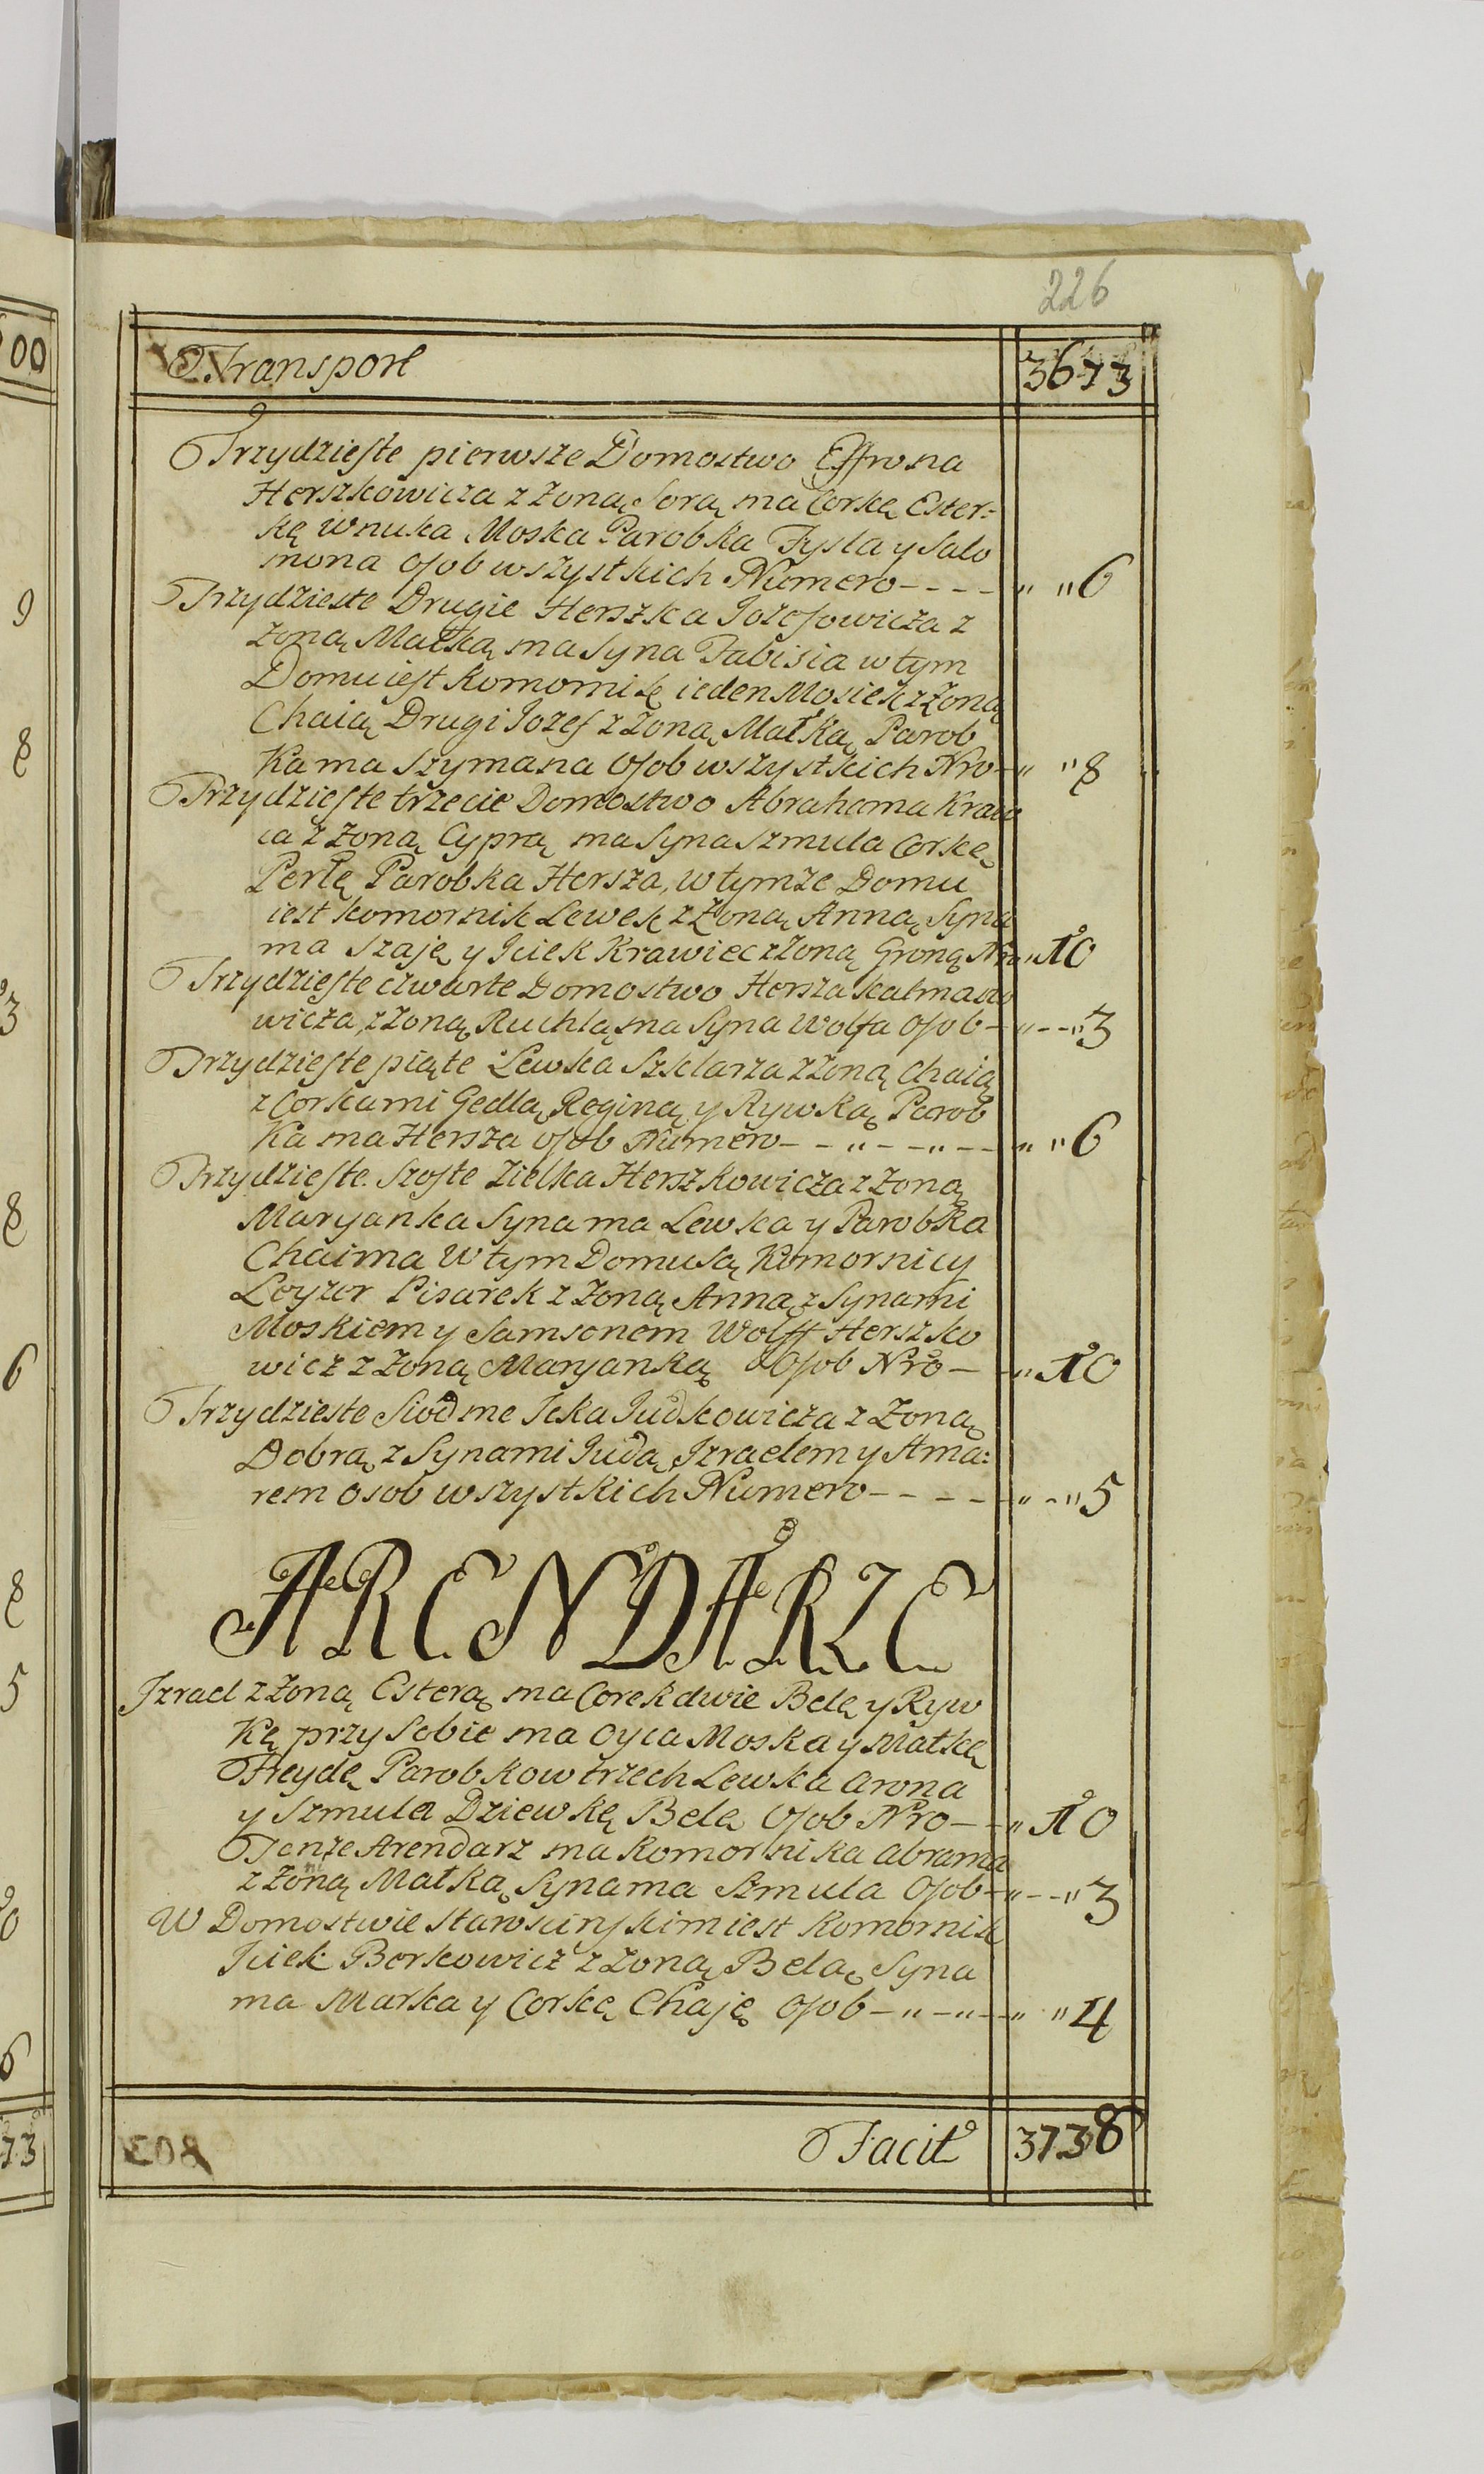 226
Transport 3673
Trzydzieste pierwsze Domostwo Effrona
Herszkowicza z Zoną Sorą ma Corkę Ester=
kę wnuka Moska Parobka Fysla y Salo
mona Osob wszystkich Numero - - - - " " 6
Trzydzieste Drugie Herszka Jozefowicza z
zoną Małką ma Syna Fabisia w tym
Domu iest Komornik ieden Mosiek z Zoną
Chaią Drugi Jozef z zoną Małką Parob
Ka ma Szymana Osob wszystkich Nro - " " 8
Trzydzieste trzecie Domostwo Abrahama Kraw
ca z Zoną Cyprą ma Syna Szmula Corkę
Perlę Parobka Hersza, w tymże Domu
iest komornik Lewek z Zoną Anną Syna
ma Szaję y Jciek Krawiec z Zoną Groną Nro " 10
Trzydzieste czwarte Domostwo Hersza Kalmano
wicza z Zoną Ruchlą ma Syna Wolfa Osob - " - - " 3
Trzydzieste piąte Lewka Szklarza z Zoną Chaią
z Corkami Gedlą Reginą y Rywką Parob
Ka ma Hersza Osob Numero - - " - - " - - " " 6
Trzydzieste Szoste Zielka Herszkowicza z Zoną
Maryanka Syna ma Lewka y Parobka
Chaima W tym Domu Są Komornicy
Leyzor Pisarek z Zoną Anną z Synami
Moskiem y Samsonem Wolff Herszko
wicz z Zoną Maryanką Osob Nro - - " 10
Trzydzieste Siodme Jcka Judkowicza z Zoną
Dobrą z Synami Judą Jzraelem y Ama=
rem Osob wszystkich Numero - - - - - " - " 5
ARENDARZE
Jzrael z Zoną Esterą ma Corek dwie Belę y Ryw
Kę przy Sobie ma Oyca Moska y Matkę
Freydę Parobkow trzech Lewka Arona
y Szmula Dziewkę Belę Osob Nro - - " 10
Tenże Arendarz ma Komornika Abrama
z Zoną Małką Syna ma Szmula Osob - " - - " 3
W Domostwie Starościńskim iest Komornik
Jciek Berkowicz z Zoną Belą Syna
ma Marka y Corkę Chaję Osob - " - " - - " " 4
Facit 3738